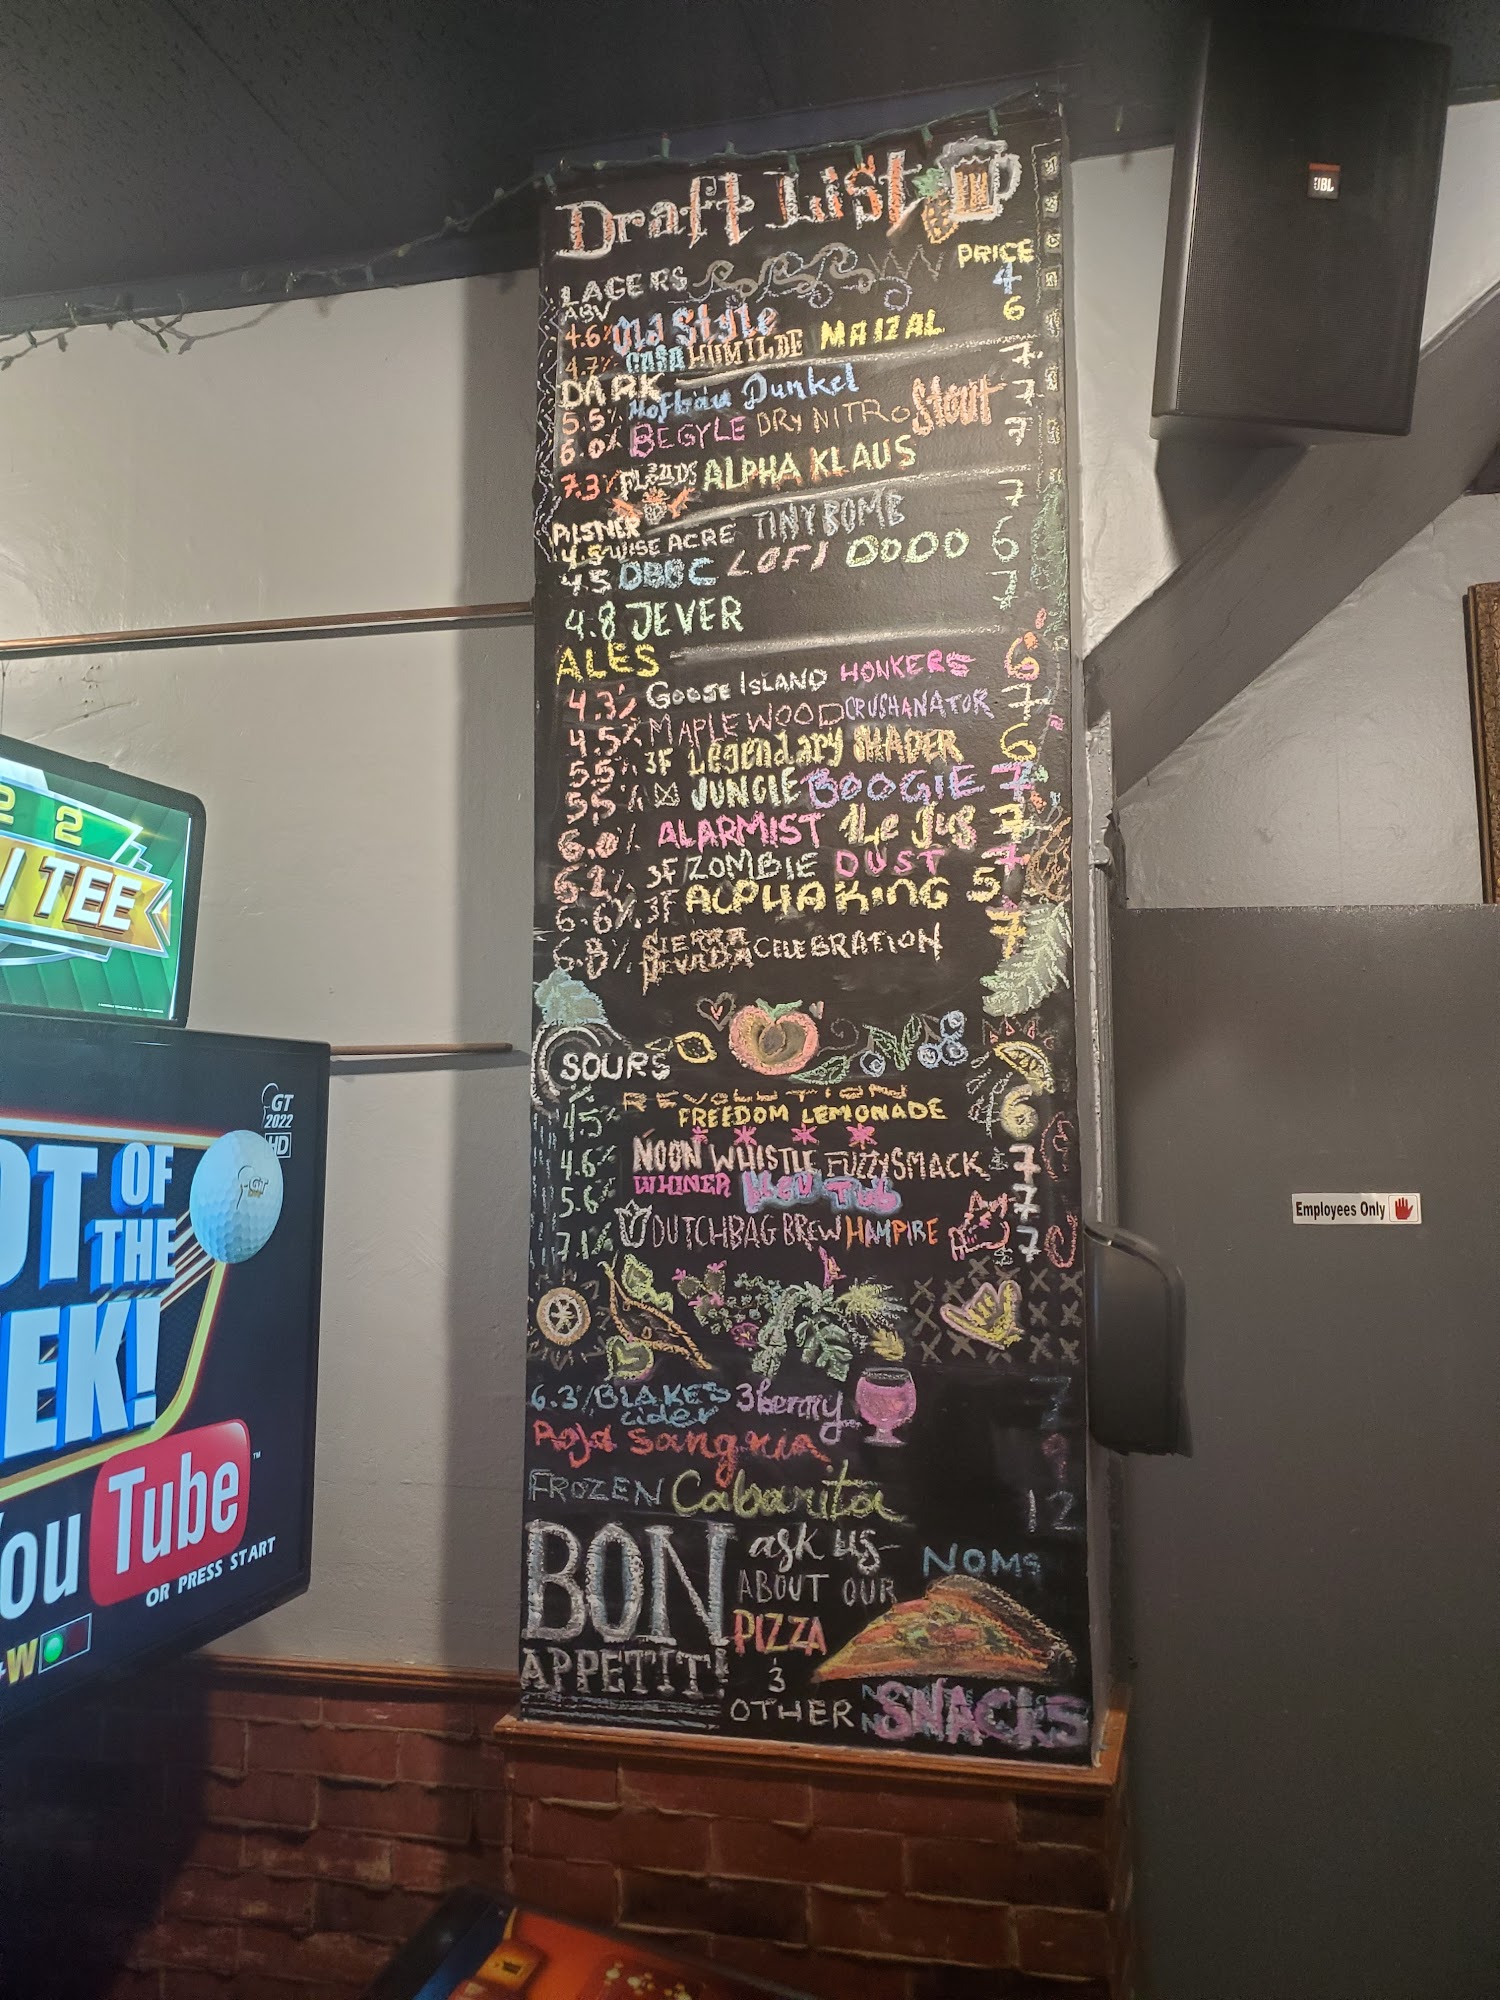 Draft List
PRICE
LAGERS
ABV
4.6% Old Style 4
4.7% CASA HUMILDE MAIZAL 6
DARK
5.5% Hofbräu Dunkel 7
6.0% BEGYLE DRY NITRO Stout 7
7.3% 3 FLOYDS ALPHA KLAUS 7
PILSNER
4.5 WISEACRE TINY BOMB 7
4.5 DBBC LOFI DODO 6
4.8 JEVER 7
ALES
4.3% GOOSE ISLAND HONKERS 6
4.5% MAPLEWOOD CRUSHANATOR 7
5.5% 3F Legendary SHADER 6
5.5% JUNGLE BOOGIE 7
6.0% ALARMIST Le Jus 7
6.2% 3F ZOMBIE DUST 7
6.6% 3F ALPHA KING 5
6.8% SIERRA NEVADA CELEBRATION 7
SOURS
REVOLUTION
4.5% FREEDOM LEMONADE 6
4.6% NOON WHISTLE FUZZY SMACK 7
5.6% WHINER 7
7.1% DUTCHBAG BREW HAMPIRE 7
6.3% BLAKES 3berry 7
cider
Roja Sangria 9
FROZEN Cabarita 12
BON
APPETIT!
ask us
ABOUT OUR
PIZZA
&
OTHER
SNACKS
NOMS
JBL
Employees Only
2 2
TEE
GT
2022
HD
OT OF
THE
EEK!
You Tube™
OR PRESS START
W